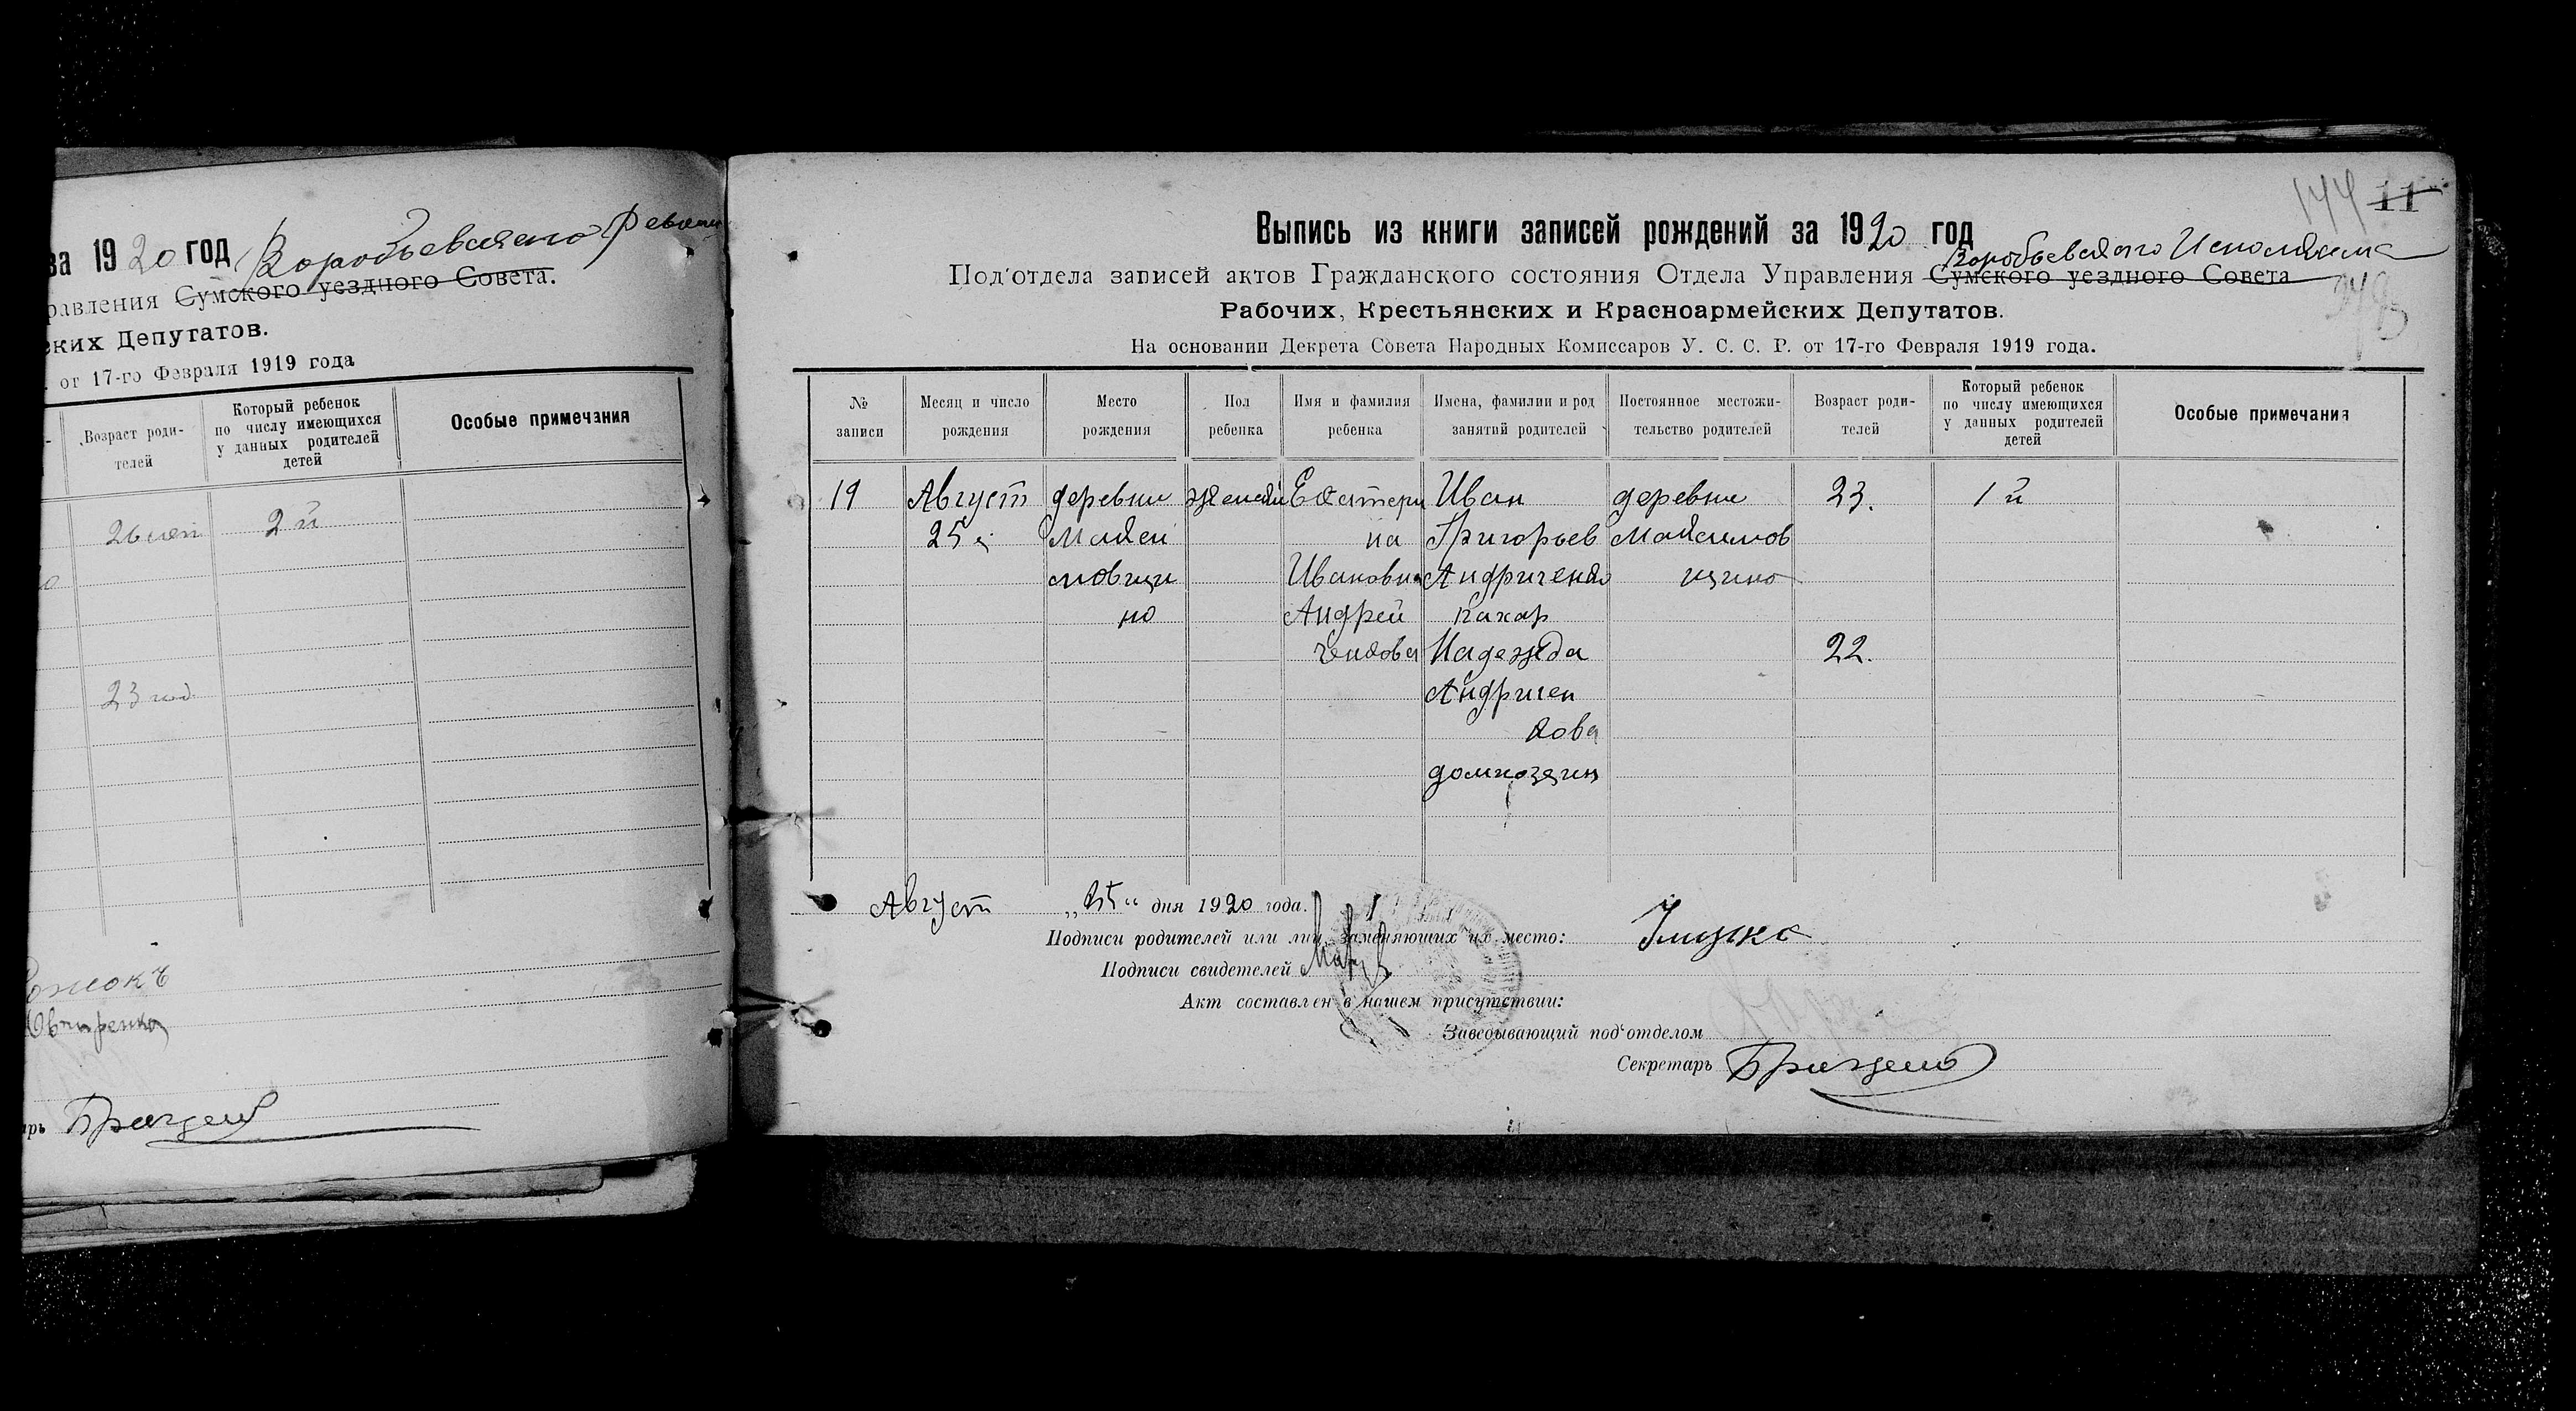 за 1920 год Воробьевского
равления Сумского уездного Совета.
ских Депутатов.
от 17-го Февраля 1919 года
Возраст роди-
телей
Который ребенок
по числу имеющихся
у данных родителей
детей
Особые примечания
26 лет
2й
23 год
144 11
Выпись из книги записей рождений за 1920 год
Воробьевского Исполкома
Под'отдела записей актов Гражданского состояния Отдела Управления Сумского уездного Совета
Рабочих, Крестьянских и Красноармейских Депутатов.
На основании Декрета Совета Народных Комиссаров У. С. С. Р. от 17-го Февраля 1919 года.
№
записи
Месяц и число
рождения
Место
рождения
Пол
ребенка
Имя и фамилия
ребенка
Имена, фамилии и род
занятий родителей
Постоянное местожи-
тельство родителей
Возраст роди-
телей
Который ребенок
по числу имеющихся
у данных родителей
детей
Особые примечания
19
Август
25
деревни
Макси
мовщи
но
женский
Екатери
на
Ивановна
Андрей
ченкова
Иван
Григорьев
Андриченко
Надежда
Андричен
кова
деревни
Максимов
щино
23.
22.
1й
Август „25“ дня 1920 года.
Подписи родителей или лиц, заменяющих их место:
Подписи свидетелей
Акт составлен в нашем присутствии:
Заведывающий под'отделом
Секретарь
рь